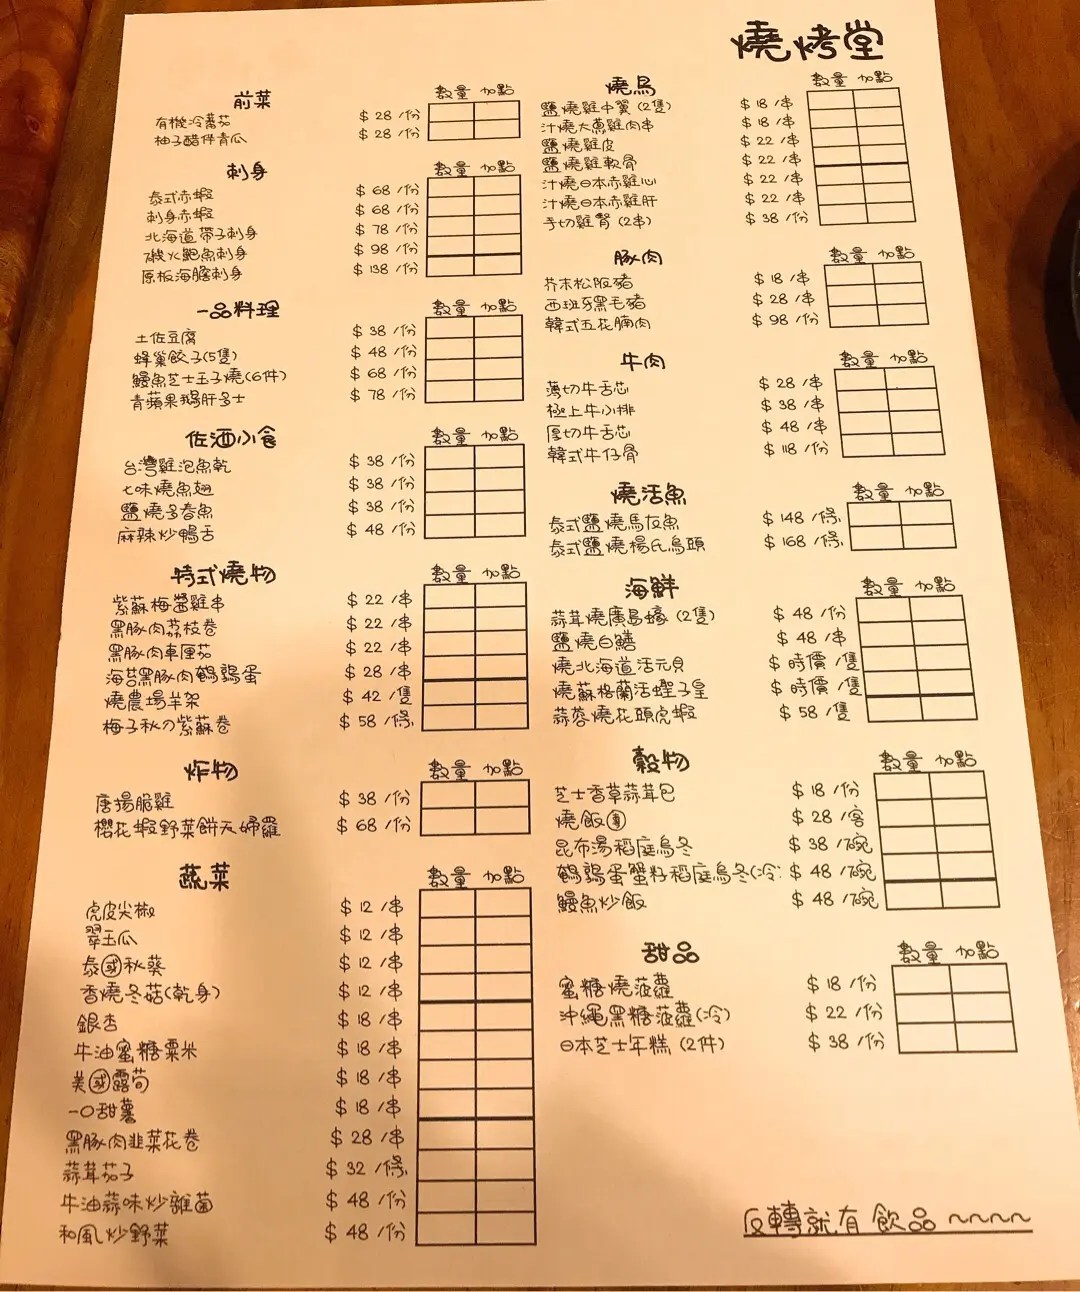 燒烤堂
前菜 數量 加點
有機冷蕃茄 $ 28 /份
柚子醋伴青瓜 $ 28 /份
刺身 數量 加點
泰式赤蝦 $ 68 /份
刺身赤蝦 $ 68 /份
北海道帶子刺身 $ 78 /份
磯火鮑魚刺身 $ 98 /份
原板海膽刺身 $ 138 /份
一品料理 數量 加點
土佐豆腐 $ 38 /份
蜂巢餃子(5隻) $ 48 /份
鰻魚芝士玉子燒(6件) $ 68 /份
青蘋果鵝肝多士 $ 78 /份
佐酒小食 數量 加點
台灣雞泡魚乾 $ 38 /份
七味燒魚翅 $ 38 /份
鹽燒多春魚 $ 38 /份
麻辣炒鴨舌 $ 48 /份
特式燒物 數量 加點
紫蘇梅醬雞串 $ 22 /串
黑豚肉荔枝卷 $ 22 /串
黑豚肉車厘茄 $ 22 /串
海苔黑豚肉鵪鶉蛋 $ 28 /串
燒農場羊架 $ 42 /隻
梅子秋刀紫蘇卷 $ 58 /條
炸物 數量 加點
唐揚脆雞 $ 38 /份
櫻花蝦野菜餅天婦羅 $ 68 /份
蔬菜 數量 加點
虎皮尖椒 $ 12 /串
翠玉瓜 $ 12 /串
泰國秋葵 $ 12 /串
香燒冬菇(乾身) $ 12 /串
銀杏 $ 18 /串
牛油蜜糖粟米 $ 18 /串
美國露荀 $ 18 /串
一口甜薯 $ 18 /串
黑豚肉韭菜花卷 $ 28 /串
蒜茸茄子 $ 32 /條
牛油蒜味炒雜菌 $ 48 /份
和風炒野菜 $ 48 /份
燒鳥 數量 加點
鹽燒雞中翼(2隻) $ 18 /串
汁燒大蔥雞肉串 $ 18 /串
鹽燒雞皮 $ 22 /串
鹽燒雞軟骨 $ 22 /串
汁燒日本赤雞心 $ 22 /串
汁燒日本赤雞肝 $ 22 /串
手切雞腎(2串) $ 38 /份
豚肉 數量 加點
芥末松阪豬 $ 18 /串
西班牙黑毛豬 $ 28 /串
韓式五花腩肉 $ 98 /份
牛肉 數量 加點
薄切牛舌芯 $ 28 /串
極上牛小排 $ 38 /串
厚切牛舌芯 $ 48 /串
韓式牛仔骨 $ 118 /份
燒活魚 數量 加點
泰式鹽燒馬友魚 $ 148 /條
泰式鹽燒楊氏烏頭 $ 168 /條
海鮮 數量 加點
蒜茸燒廣島蠔(2隻) $ 48 /份
鹽燒白鱔 $ 48 /串
燒北海道活元貝 $ 時價 /隻
燒蘇格蘭活蟶子皇 $ 時價 /隻
蒜蓉燒花頭虎蝦 $ 58 /隻
穀物 數量 加點
芝士香草蒜茸包 $ 18 /份
燒飯團 $ 28 /客
昆布湯稻庭烏冬 $ 38 /碗
鵪鶉蛋蟹籽稻庭烏冬(冷) $ 48 /碗
鰻魚炒飯 $ 48 /碗
甜品 數量 加點
蜜糖燒菠蘿 $ 18 /份
沖繩黑糖菠蘿(冷) $ 22 /份
日本芝士年糕(2件) $ 38 /份
反轉就有飲品~~~~